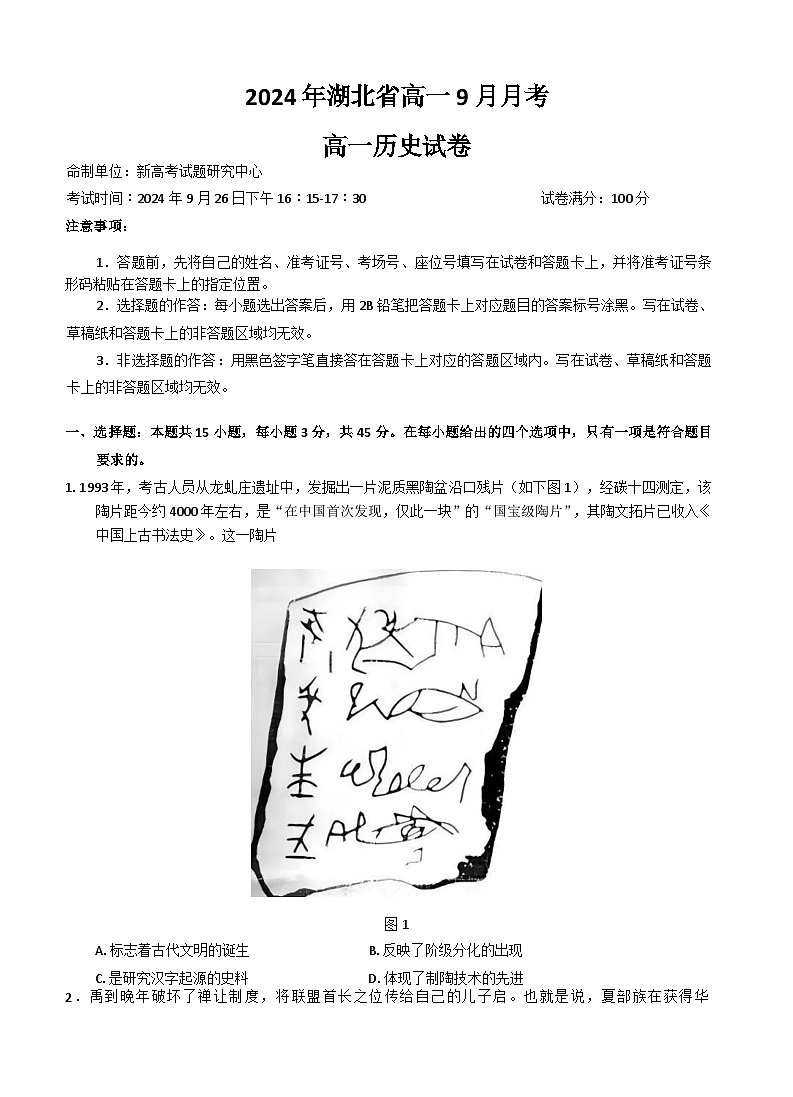 2024 年湖北省高一 9 月月考
高一历史试卷
命制单位：新高考试题研究中心
考试时间：2024 年 9 月 26 日下午 16：15-17：30 试卷满分：100 分
注意事项：
1．答题前，先将自己的姓名、准考证号、考场号、座位号填写在试卷和答题卡上，并将准考证号条
形码粘贴在答题卡上的指定位置。
2．选择题的作答：每小题选出答案后，用 2B 铅笔把答题卡上对应题目的答案标号涂黑。写在试卷、
草稿纸和答题卡上的非答题区域均无效。
3．非选择题的作答：用黑色签字笔直接答在答题卡上对应的答题区域内。写在试卷、草稿纸和答题
卡上的非答题区域均无效。
一、选择题：本题共 15 小题，每小题 3 分，共 45 分。在每小题给出的四个选项中，只有一项是符合题目
要求的。
1. 1993 年，考古人员从龙虬庄遗址中，发掘出一片泥质黑陶盆沿口残片（如下图 1），经碳十四测定，该
陶片距今约 4000 年左右，是“在中国首次发现，仅此一块”的“国宝级陶片”，其陶文拓片已收入《
中国上古书法史》。这一陶片
图 1
A. 标志着古代文明的诞生 B. 反映了阶级分化的出现
C. 是研究汉字起源的史料 D. 体现了制陶技术的先进
2．禹到晚年破坏了禅让制度，将联盟首长之位传给自己的儿子启。也就是说，夏部族在获得华